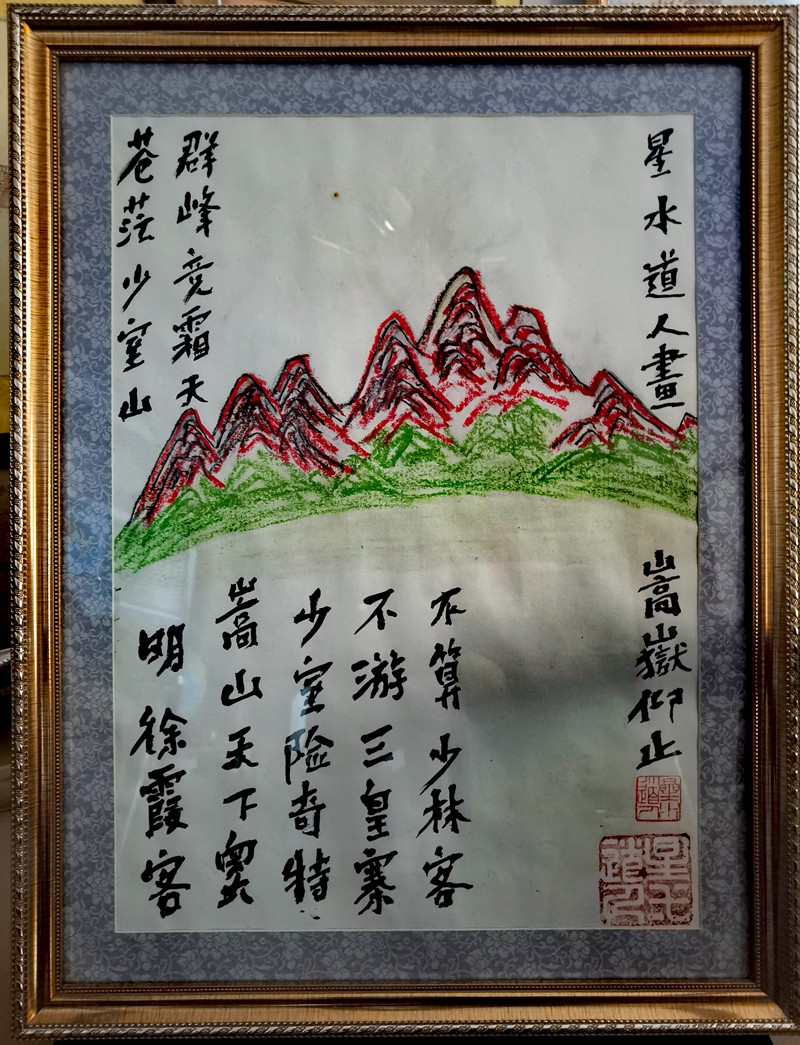 星水道人畫
嵩嶽仰止
群峰竞霜天
苍茫少室山
不算少林客
不游三皇寨
少室险奇特
嵩山天下奥
明 徐霞客
星水道人